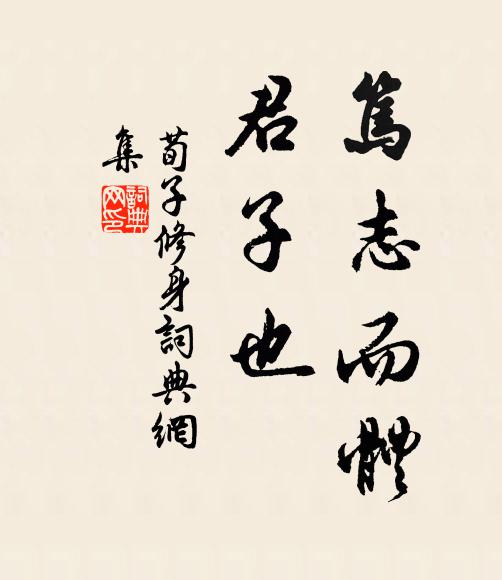 篤志而體
君子也
荀子修身詞典網
集
詞典
网印